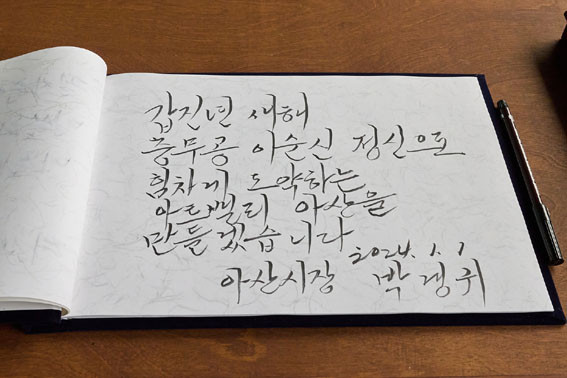 갑진년 새해
충무공 이순신 정신으로
힘차게 도약하는
아트밸리 아산을
만들겠습니다
2024. 1. 1
아산시장 박경귀